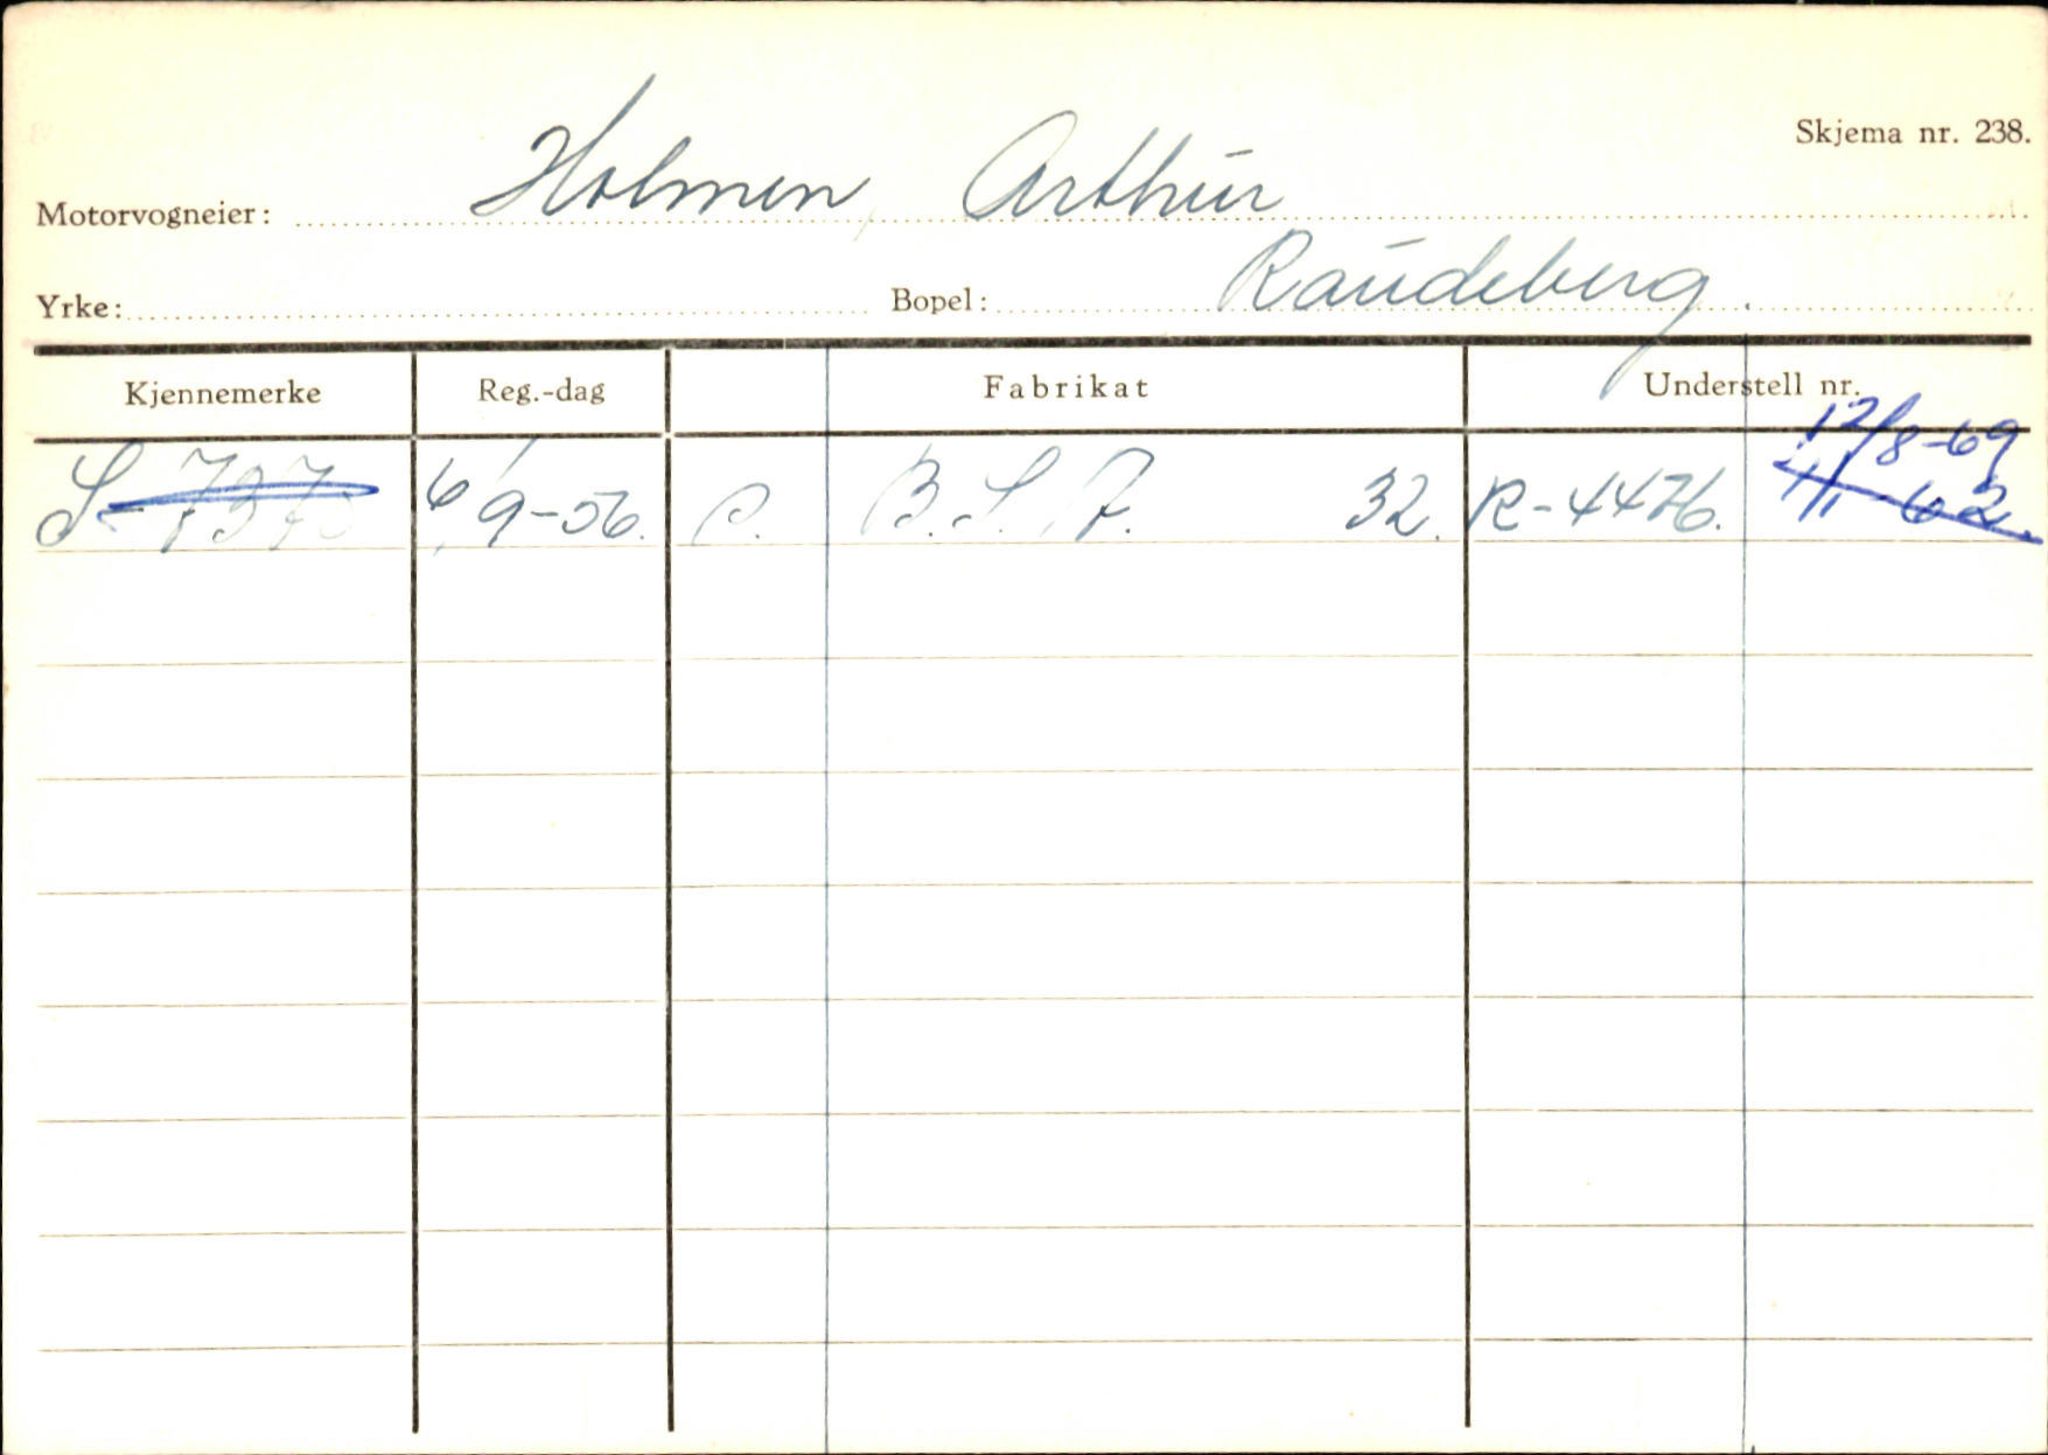 Skjema nr. 238.
Motorvogneier: Holmen, Arthur
Yrke: Bopel: Raudeberg.
Kjennemerke Reg.-dag Fabrikat Understell nr.
12/8-69
S-7375 6/9-56. c. B.S.A. 32. R-4476. 1/1-62.